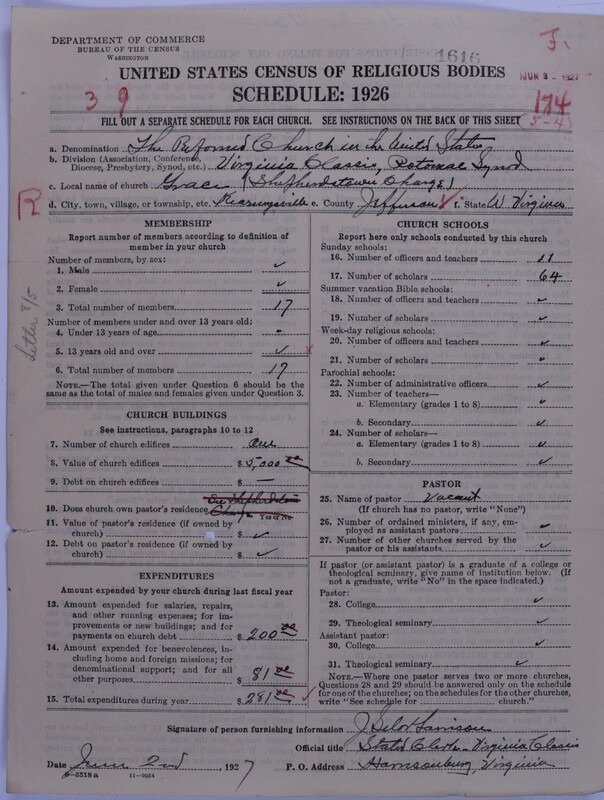 DEPARTMENT OF COMMERCE
BUREAU OF THE CENSUS
WASHINGTON
1616
F.
JUN 3 - 1927
UNITED STATES CENSUS OF RELIGIOUS BODIES
SCHEDULE: 1926
3 9
174
(5-4)
FILL OUT A SEPARATE SCHEDULE FOR EACH CHURCH. SEE INSTRUCTIONS ON THE BACK OF THIS SHEET
a. Denomination The Reformed Church in the United States
b. Division (Association, Conference, Diocese, Presbytery, Synod, etc.) Virginia Classis, Potomac Synod
c. Local name of church Grace (Shepherdstown Charge)
d. City, town, village, or township, etc. Kearneysville e. County Jefferson f. State W. Virginia
R
Letter 8/5
MEMBERSHIP
Report number of members according to definition of member in your church
Number of members, by sex:
1. Male ✓
2. Female ✓
3. Total number of members 17
Number of members under and over 13 years old:
4. Under 13 years of age -
5. 13 years old and over ✓ x
6. Total number of members 17
NOTE.—The total given under Question 6 should be the same as the total of males and females given under Question 3.
CHURCH BUILDINGS
See instructions, paragraphs 10 to 12
7. Number of church edifices one
8. Value of church edifices $ 5,000 00
9. Debt on church edifices $ —
10. Does church own pastor's residence See Shepherdstown Charge
Yes or No
11. Value of pastor's residence (if owned by church) $ ✓
12. Debt on pastor's residence (if owned by church) $ ✓
EXPENDITURES
Amount expended by your church during last fiscal year
13. Amount expended for salaries, repairs, and other running expenses; for improvements or new buildings; and for payments on church debt $ 200 00
14. Amount expended for benevolences, including home and foreign missions; for denominational support; and for all other purposes $ 81 00
15. Total expenditures during year $ 281 00 ✓
CHURCH SCHOOLS
Report here only schools conducted by this church
Sunday schools:
16. Number of officers and teachers 11
17. Number of scholars 64
Summer vacation Bible schools:
18. Number of officers and teachers ✓
19. Number of scholars ✓
Week-day religious schools:
20. Number of officers and teachers ✓
21. Number of scholars ✓
Parochial schools:
22. Number of administrative officers ✓
23. Number of teachers—
a. Elementary (grades 1 to 8) ✓
b. Secondary ✓
24. Number of scholars—
a. Elementary (grades 1 to 8) ✓
b. Secondary ✓
PASTOR
25. Name of pastor Vacant
(If church has no pastor, write "None")
26. Number of ordained ministers, if any, employed as assistant pastors ✓
27. Number of other churches served by the pastor or his assistants ✓
If pastor (or assistant pastor) is a graduate of a college or theological seminary, give name of institution below. (If not a graduate, write "No" in the space indicated.)
Pastor:
28. College ✓
29. Theological seminary ✓
Assistant pastor:
30. College ✓
31. Theological seminary ✓
NOTE.—Where one pastor serves two or more churches, Questions 28 and 29 should be answered only on the schedule for one of the churches; on the schedules for the other churches, write "See schedule for ______ church."
Signature of person furnishing information J Silor Garrison
Official title Stated Clerk - Virginia Classis
Date June 2nd, 1927 P. O. Address Harrisonburg, Virginia
6-5518a 11-9034